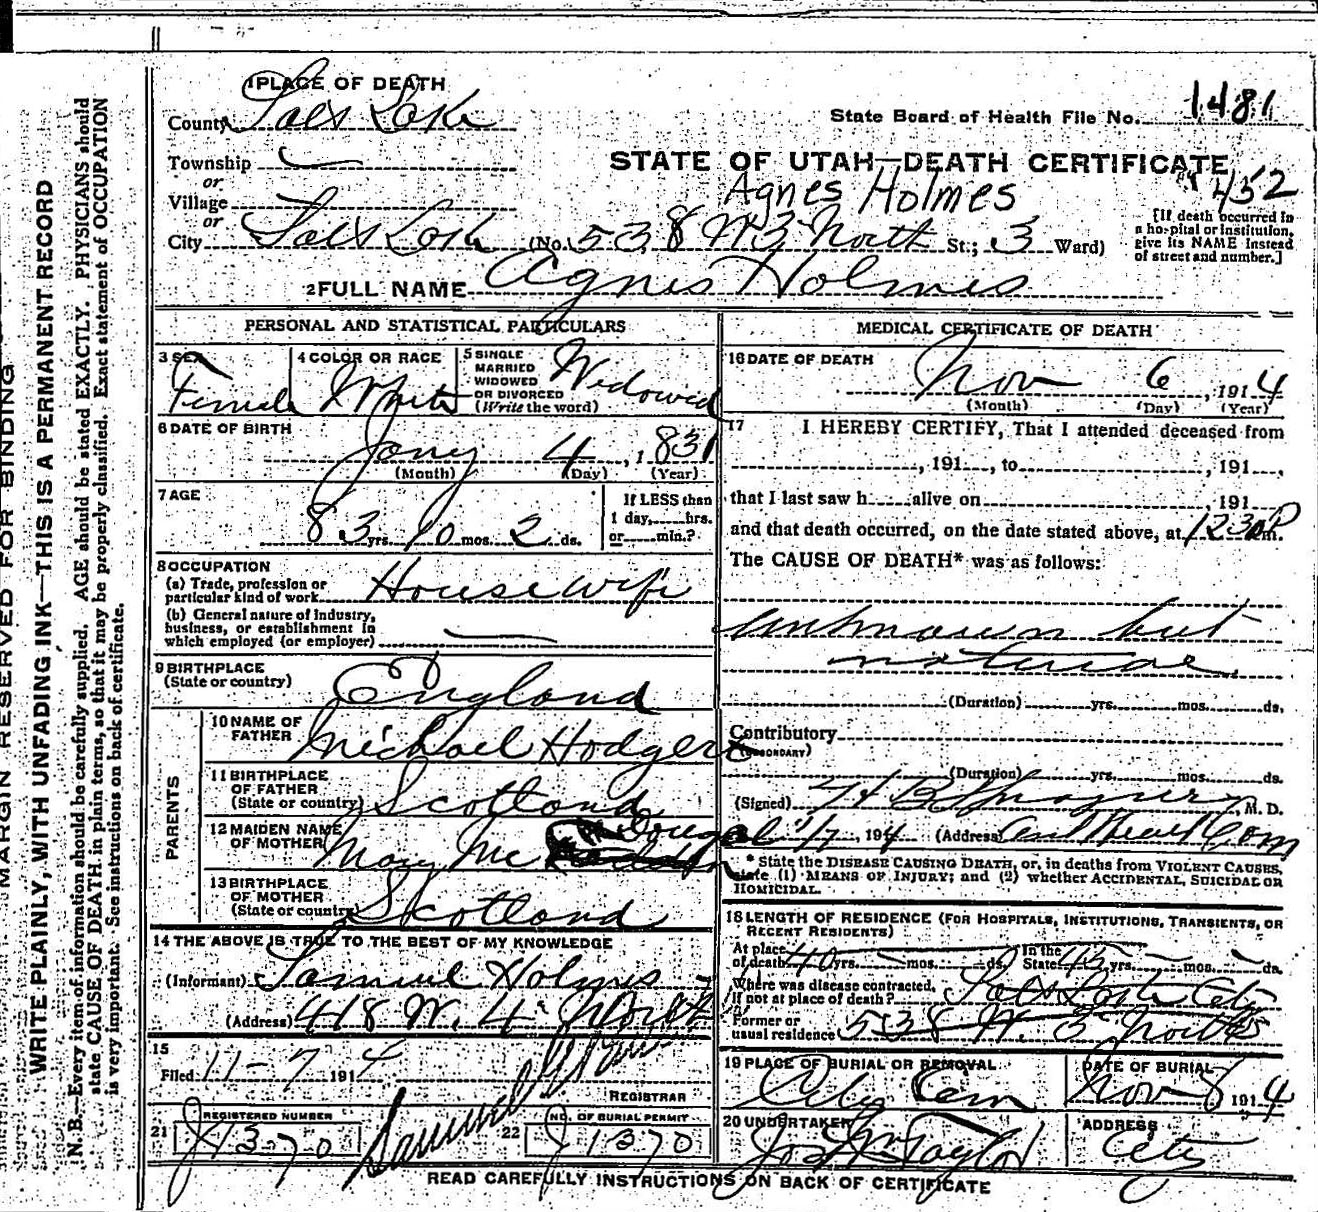 MARGIN RESERVED FOR BINDING
WRITE PLAINLY, WITH UNFADING INK—THIS IS A PERMANENT RECORD
N. B.—Every item of information should be carefully supplied. AGE should be stated EXACTLY. PHYSICIANS should
state CAUSE OF DEATH in plain terms, so that it may be properly classified. Exact statement of OCCUPATION
is very important. See instructions on back of certificate.
1 PLACE OF DEATH
County Salt Lake
State Board of Health File No. 1481
Township
or
Village
or
STATE OF UTAH—DEATH CERTIFICATE
452
Agnes Holmes
City Salt Lake (No. 538 W 3 North St.; 3 Ward)
[If death occurred in
a hospital or institution,
give its NAME instead
of street and number.]
2 FULL NAME Agnes Holmes
PERSONAL AND STATISTICAL PARTICULARS
3 SEX
Female
4 COLOR OR RACE
White
5 SINGLE
MARRIED
WIDOWED
OR DIVORCED
(Write the word)
Widowed
6 DATE OF BIRTH
Jany 4, 1831
(Month) (Day) (Year)
7 AGE
83 yrs. 10 mos. 2 ds.
If LESS than
1 day, hrs.
or min.?
8 OCCUPATION
(a) Trade, profession or
particular kind of work Housewife
(b) General nature of industry,
business, or establishment in
which employed (or employer)
9 BIRTHPLACE
(State or country)
England
PARENTS
10 NAME OF
FATHER
Michael Hodgert
11 BIRTHPLACE
OF FATHER
(State or country) Scotland
12 MAIDEN NAME
OF MOTHER
Mary Mc Dougal
13 BIRTHPLACE
OF MOTHER
(State or country) Scotland
14 THE ABOVE IS TRUE TO THE BEST OF MY KNOWLEDGE
(Informant) Samuel Holmes
(Address) 418 W. 4 North
15
Filed 11-7 1914
REGISTRAR
REGISTERED NUMBER
21 J 1370
NO. OF BURIAL PERMIT
22 J 1370
MEDICAL CERTIFICATE OF DEATH
16 DATE OF DEATH
Nov 6, 1914
(Month) (Day) (Year)
17 I HEREBY CERTIFY, That I attended deceased from
, 191 , to , 191 ,
that I last saw h alive on , 191
and that death occurred, on the date stated above, at 1230P m.
The CAUSE OF DEATH* was as follows:
unknown but
natural
(Duration) yrs. mos. ds.
Contributory
(SECONDARY)
(Duration) yrs. mos. ds.
(Signed) M. D.
11/7, 1914 (Address) Health Com
* State the DISEASE CAUSING DEATH, or, in deaths from VIOLENT CAUSES,
state (1) MEANS OF INJURY; and (2) whether ACCIDENTAL, SUICIDAL OR
HOMICIDAL.
18 LENGTH OF RESIDENCE (FOR HOSPITALS, INSTITUTIONS, TRANSIENTS, OR
RECENT RESIDENTS)
At place
of death 40 yrs. mos. ds.
In the
State 45 yrs. mos. ds.
Where was disease contracted,
if not at place of death? Salt Lake City
Former or
usual residence 538 W. 3 North
19 PLACE OF BURIAL OR REMOVAL
City Cem
DATE OF BURIAL
Nov 8 1914
20 UNDERTAKER
Jos Wm Taylor
ADDRESS
City
READ CAREFULLY INSTRUCTIONS ON BACK OF CERTIFICATE